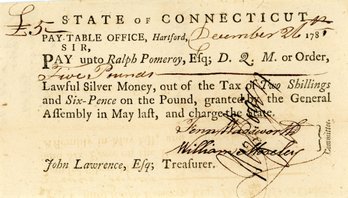 £5 STATE OF CONNECTICUT
PAY-TABLE OFFICE, Hartford, December 26 1781
SIR,
PAY unto Ralph Pomeroy, Esq; D. Q. M. or Order,
Five Pounds
Lawful Silver Money, out of the Tax of Two Shillings
and Six-Pence on the Pound, granted by the General
Assembly in May last, and charge the State.
Fenn Wadsworth
William Moseley
Committee.
John Lawrence, Esq; Treasurer.